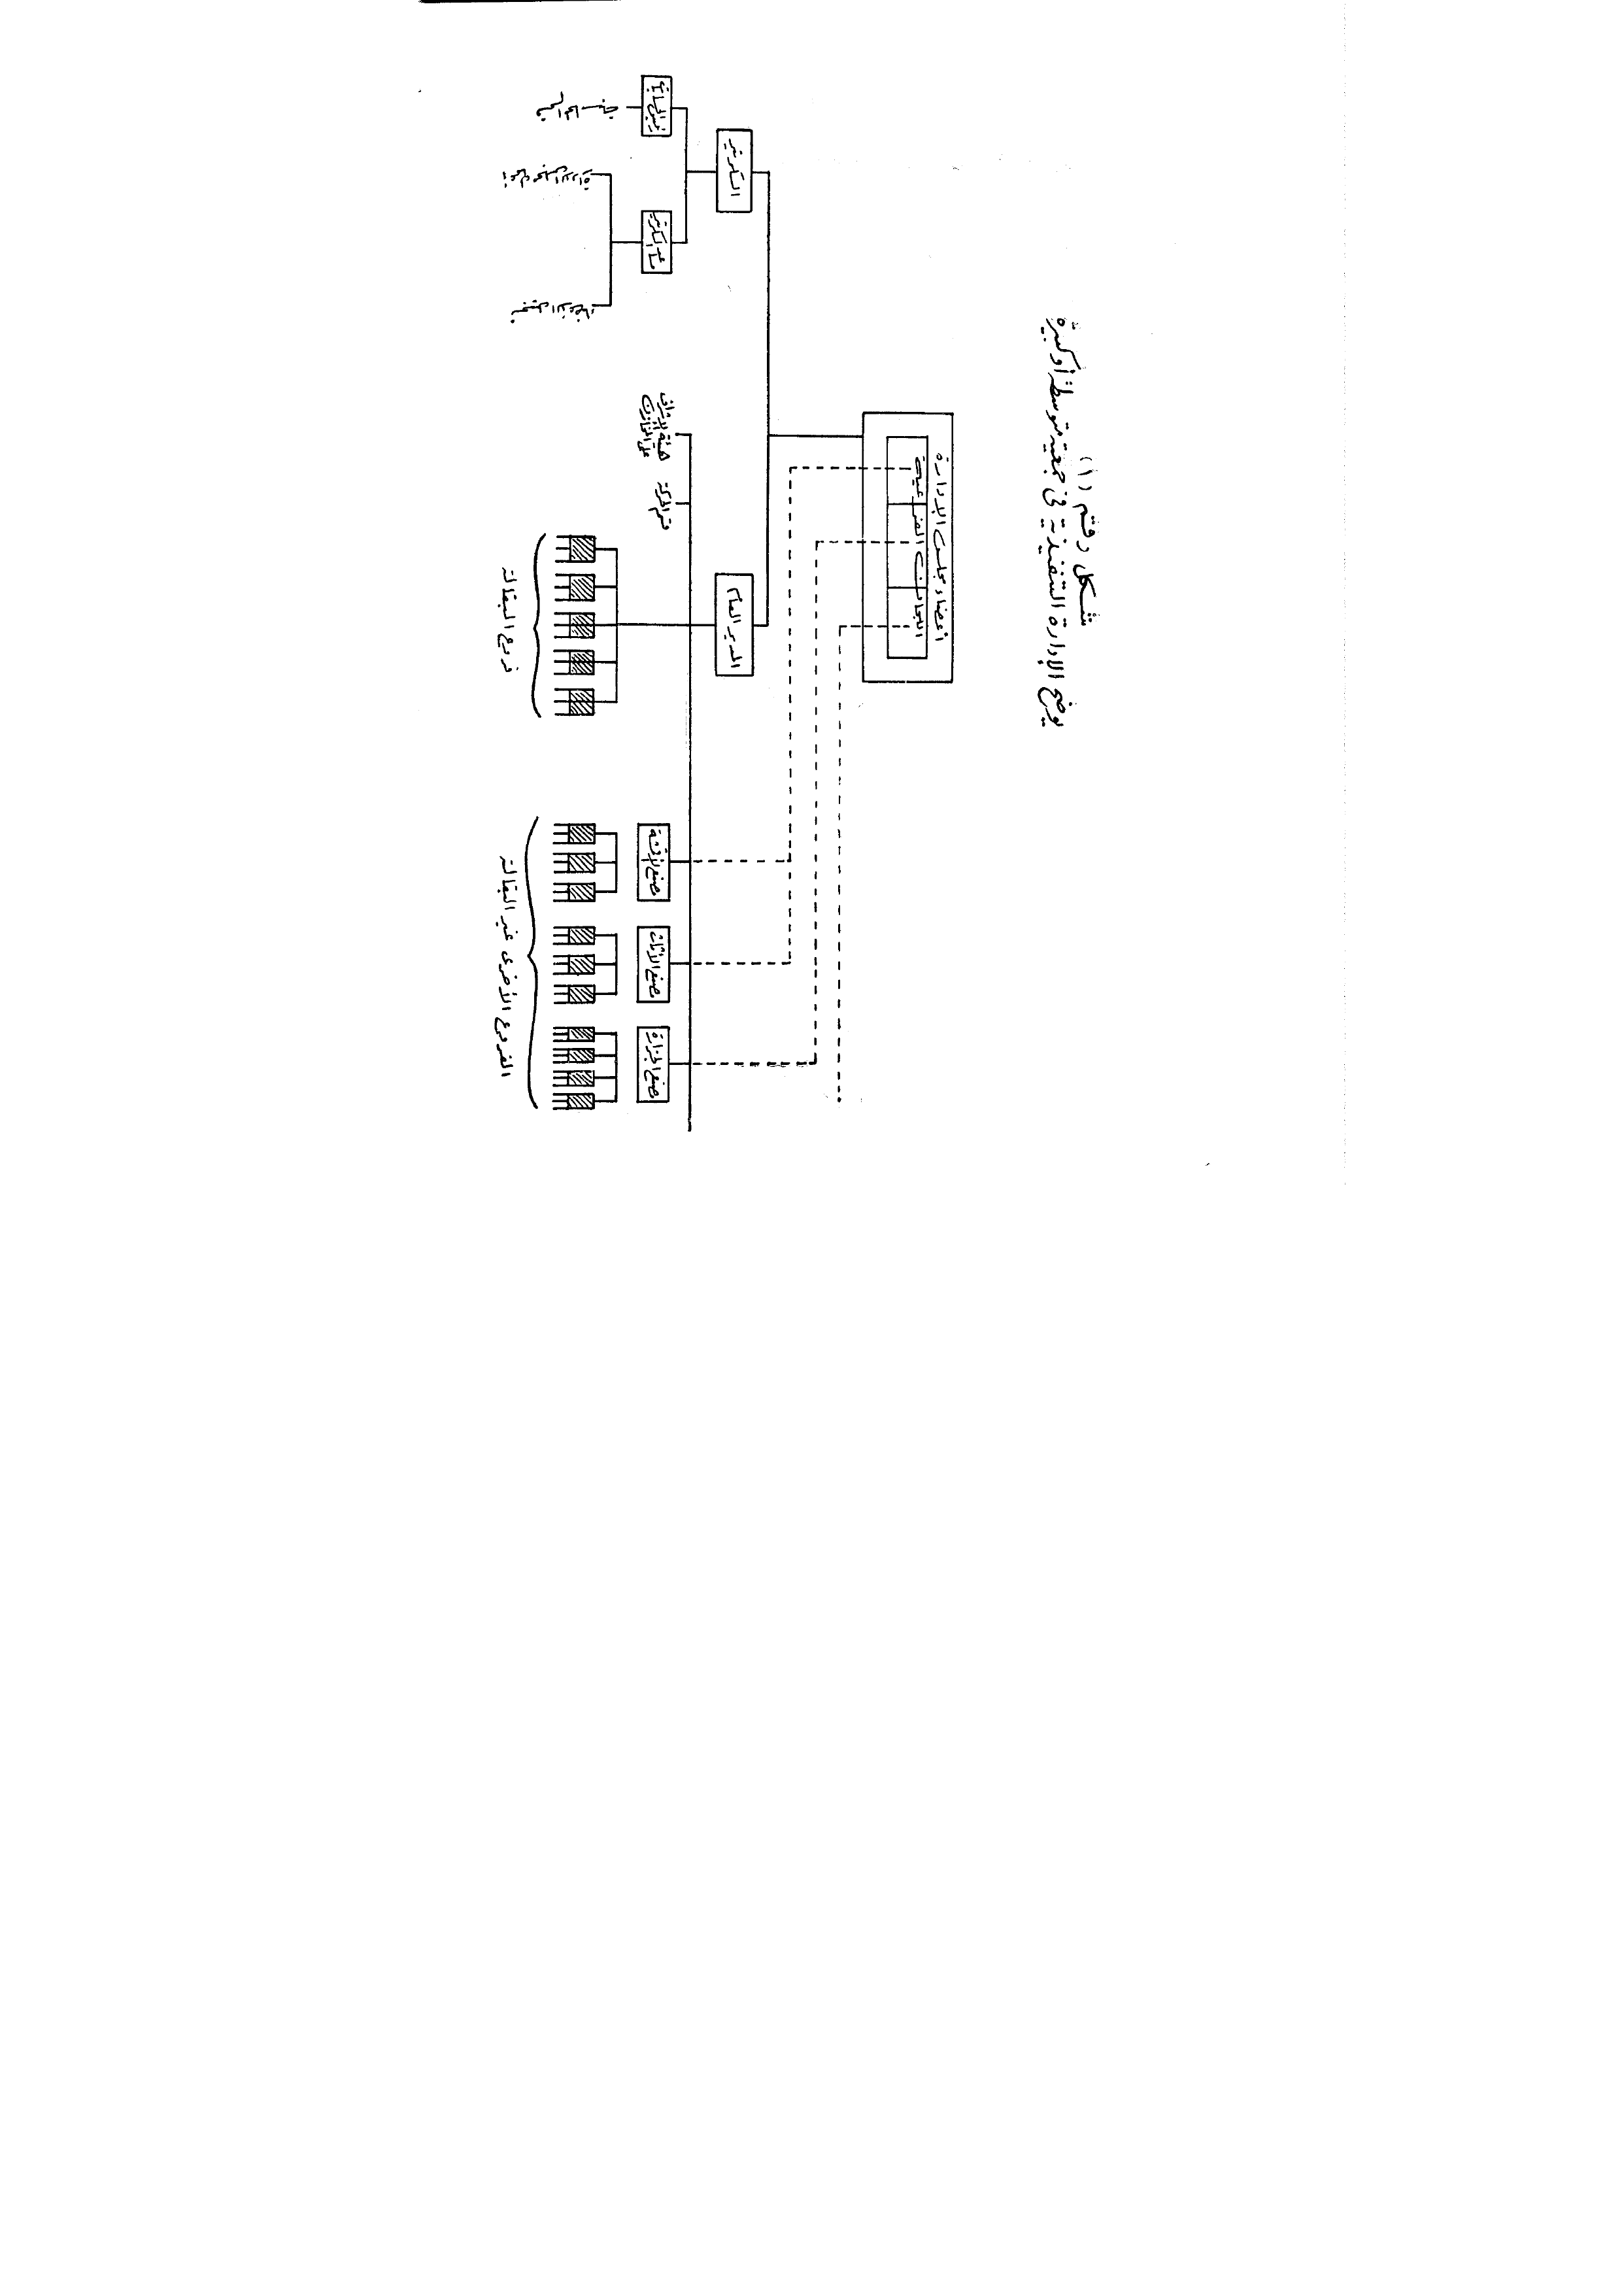 شكل رقم (١)
يوضح الإدارة التنفيذية في جمعية متوسطة أو كبيرة
أعضاء مجلس الإدارة
اللجان الفرعية
السكرتير
المدير العام
رئيس الحسابات
مساعد السكرتير
هيئة الإشراف
على المخازن
قسم الحركة
مصنع الأقمشة
مصنع الأثاث
مصنع الجزارة
فروع البقالة
الفروع الأخرى غير البقالة